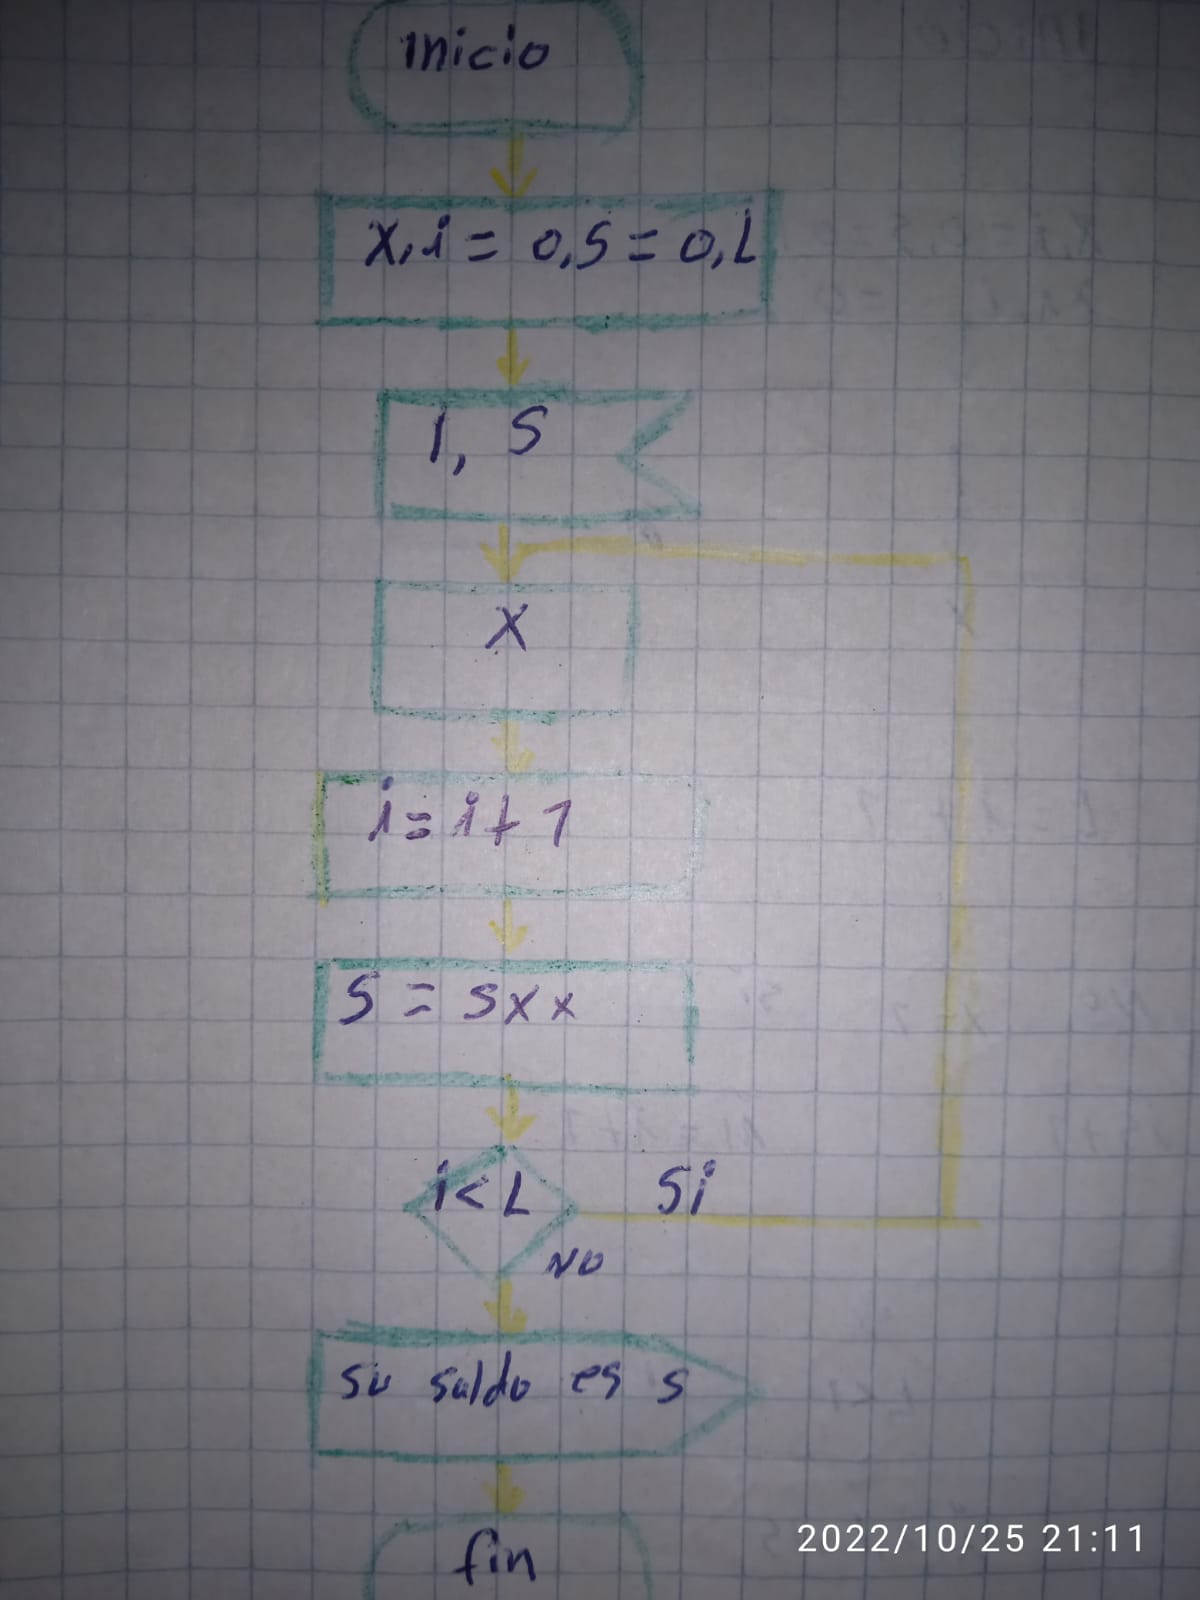 inicio
x, i = 0, S = 0, L
1, S
X
i = i + 1
S = S x x
i < L
Si
NO
su saldo es s
fin
2022/10/25 21:11